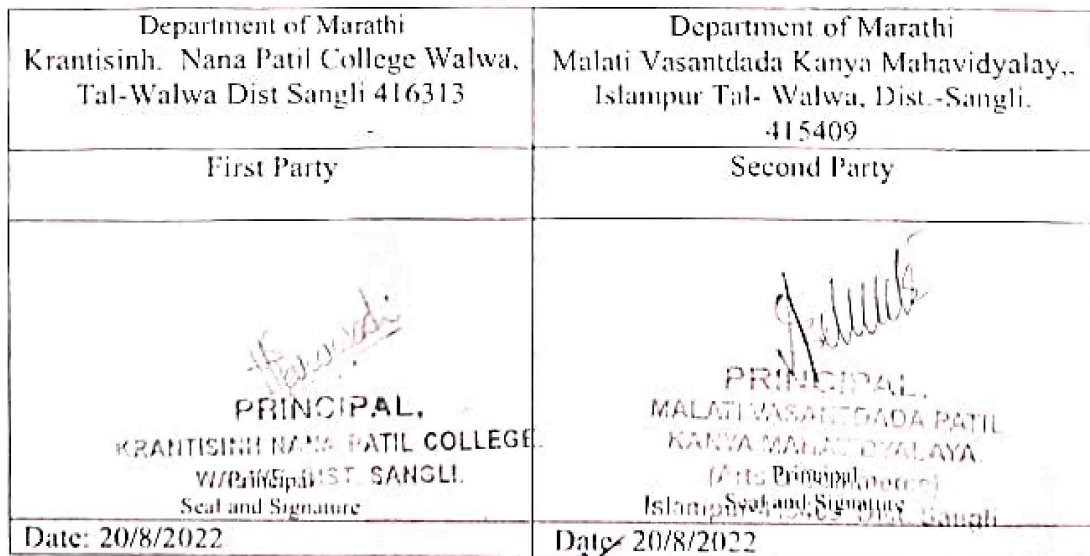 Department of Marathi
Krantisinh. Nana Patil College Walwa,
Tal-Walwa Dist Sangli 416313
Department of Marathi
Malati Vasantdada Kanya Mahavidyalay,.
Islampur Tal- Walwa, Dist.-Sangli.
415409
First Party
Second Party
PRINCIPAL,
KRANTISINH NANA PATIL COLLEGE
DIST. SANGLI.
Principal
Seal and Signature
PRINCIPAL,
MALATI VASANTDADA PATIL
KANYA MAHAVIDYALAYA
(Arts
Principal
Islampur Sangli
Seal and Signature
Date: 20/8/2022
Date 20/8/2022